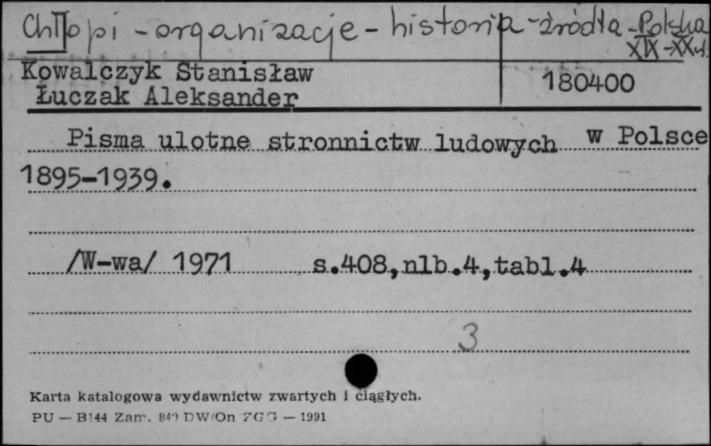 Chłopi - organizacje - historia - źródła - Polska
XIX-XX w.
Kowalczyk Stanisław
180400
Łuczak Aleksander
Pisma ulotne stronnictw ludowych w Polsce
1895-1939.
/W-wa/ 1971 s.408,nlb.4,tabl.4
3
Karta katalogowa wydawnictw zwartych i ciągłych.
PU — B144 Zam. 849 DW/On ZGG — 1991